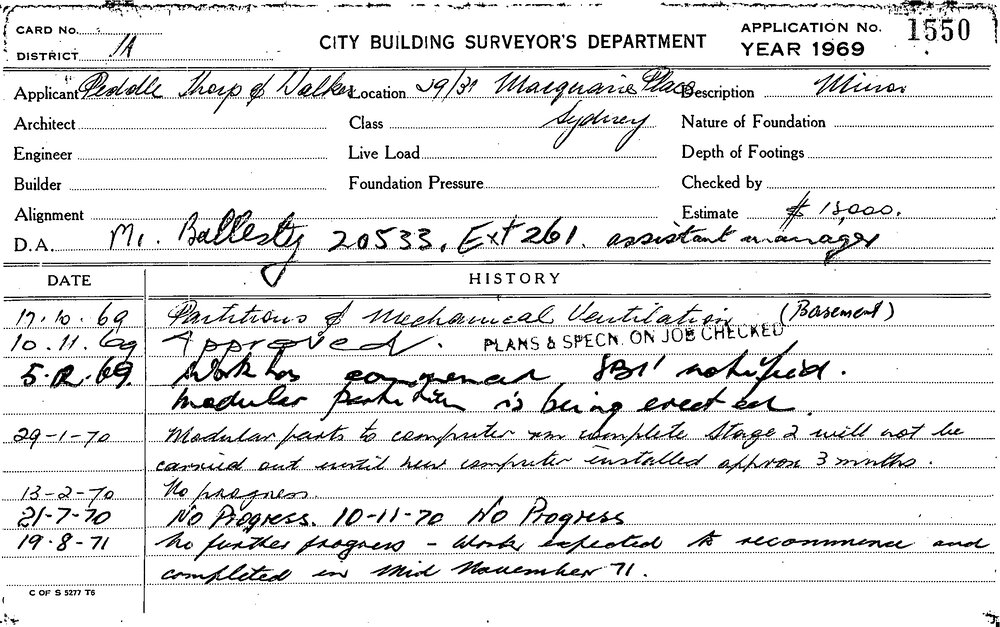 CARD No.
CITY BUILDING SURVEYOR'S DEPARTMENT
APPLICATION No. 1550
DISTRICT 1A
YEAR 1969
Applicant Peddle Thorp & Walker Location 29/31 Macquarie Place Description Minor
Architect Class Sydney Nature of Foundation
Engineer Live Load Depth of Footings
Builder Foundation Pressure Checked by
Alignment Estimate $
D.A. Mr. Ballesty 20533. Ext 261. assistant manager
DATE HISTORY
17.10.69 Partitions & Mechanical Ventilation (Basement)
10.11.69 Approved. PLANS & SPECN. ON JOB CHECKED
5.12.69. Work has commenced notified.
Modular partition is being erected.
29-1-70 Modular parts to computer rm complete Stage 2 will not be
carried out until new computer installed approx 3 months.
13-2-70 No progress.
21-7-70 No Progress. 10-11-70 No Progress
19.8.71 No further progress – Work expected to recommence and
completed in Mid November 71.
C OF S 5277 T6